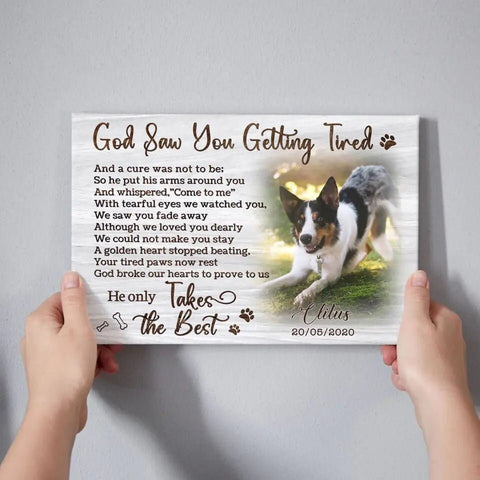 God Saw You Getting Tired
And a cure was not to be:
So he put his arms around you
And whispered,"Come to me"
With tearful eyes we watched you,
We saw you fade away
Although we loved you dearly
We could not make you stay
A golden heart stopped beating,
Your tired paws now rest
God broke our hearts to prove to us
He only Takes
the Best
Clitus
20/05/2020